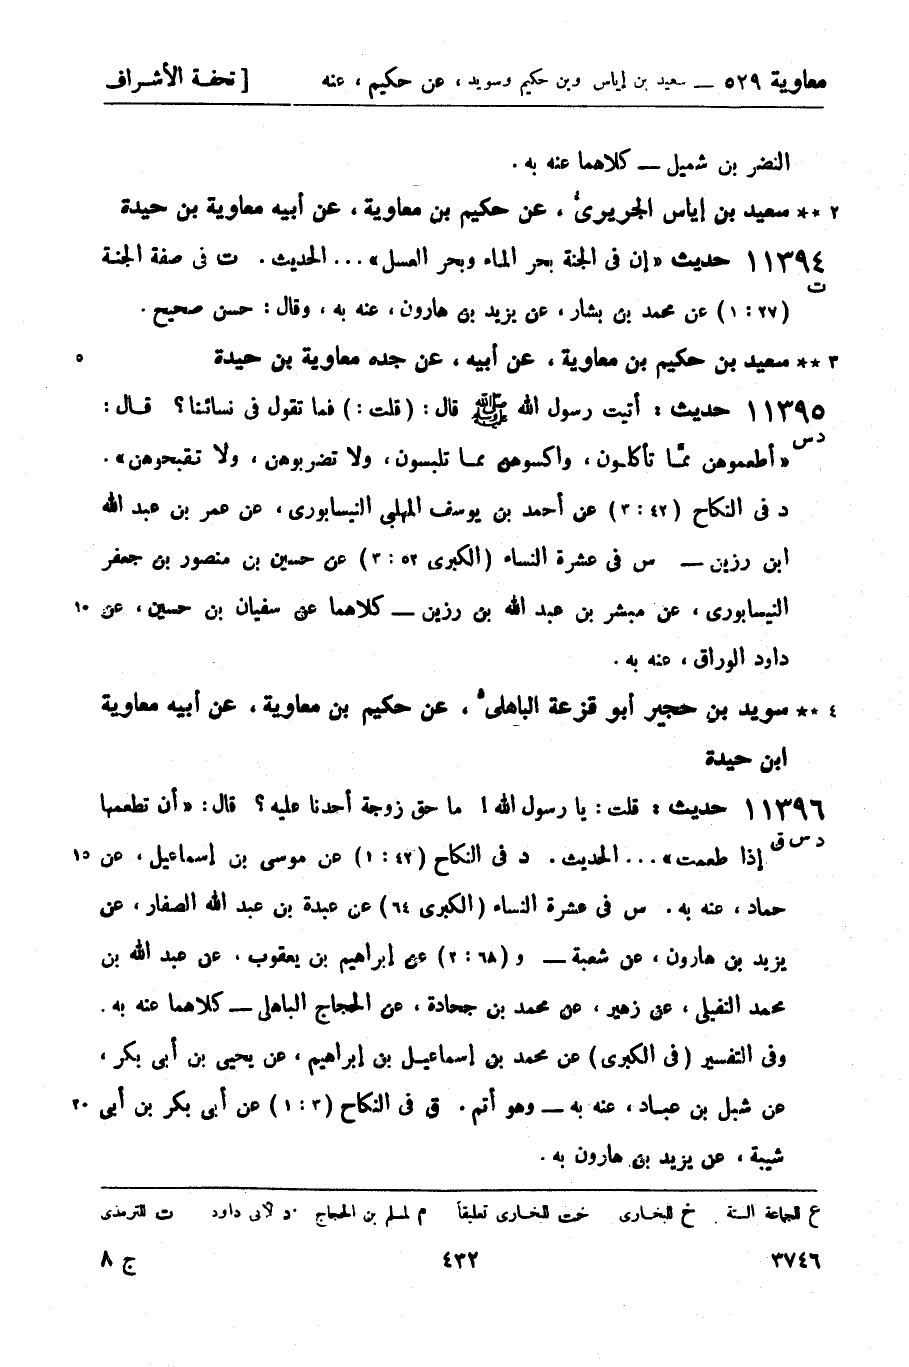 معاوية ٥٢٩ — سعيد بن إياس وبن حكيم وسويد ، عن حكيم ، عنه [ تحفة الأشراف
النضر بن شميل — كلاهما عنه به .
٢ ** سعيد بن إياس الجريرى ، عن حكيم بن معاوية ، عن أبيه معاوية بن حيدة
١١٣٩٤ حديث « إن فى الجنة بحر الماء وبحر العسل » . . . الحديث . ت فى صفة الجنة
ت
( ٢٧ : ١ ) عن محمد بن بشار ، عن يزيد بن هارون ، عنه به ، وقال : حسن صحيح .
٣ ** سعيد بن حكيم بن معاوية ، عن أبيه ، عن جده معاوية بن حيدة ٥
١١٣٩٥ حديث : أتيت رسول الله ﷺ قال : ( قلت : ) فما تقول فى نسائنا ؟ قال :
د س
« أطعموهن ممَّا تأكلون ، واكسوهن مما تلبسون ، ولا تضربوهن ، ولا تقبحوهن » .
د فى النكاح ( ٤٢ : ٣ ) عن أحمد بن يوسف المهلبي النيسابورى ، عن عمر بن عبد الله
ابن رزين — س فى عشرة النساء ( الكبرى ٥٢ : ٣ ) عن حسين بن منصور بن جعفر
النيسابورى ، عن مبشر بن عبد الله بن رزين — كلاهما عن سفيان بن حسين ، عن ١٠
داود الوراق ، عنه به .
٤ ** سويد بن حجير أبو قزعة الباهلى ، عن حكيم بن معاوية ، عن أبيه معاوية
ابن حيدة
١١٣٩٦ حديث : قلت : يا رسول الله ! ما حق زوجة أحدنا عليه ؟ قال : « أن تطعمها
د س ق
إذا طعمت » . . . الحديث . د فى النكاح ( ٤٢ : ١ ) عن موسى بن إسماعيل ، عن ١٥
حماد ، عنه به . س فى عشرة النساء ( الكبرى ٦٤ ) عن عبدة بن عبد الله الصفار ، عن
يزيد بن هارون ، عن شعبة — و ( ٦٨ : ٢ ) عن إبراهيم بن يعقوب ، عن عبد الله بن
محمد النفيلى ، عن زهير ، عن محمد بن جحادة ، عن الحجاج الباهلى — كلاهما عنه به .
وفى التفسير ( فى الكبرى ) عن محمد بن إسماعيل بن إبراهيم ، عن يحيى بن أبى بكر ،
عن شبل بن عباد ، عنه به — وهو أتم . ق فى النكاح ( ٣ : ١ ) عن أبى بكر بن أبى ٢٠
شيبة ، عن يزيد بن هارون به .
ع للجماعة الستة خ للبخارى خت للبخارى تعليقاً م لمسلم بن الحجاج د لأبى داود ت للترمذى
٣٧٤٦ ٤٣٢ ج ٨